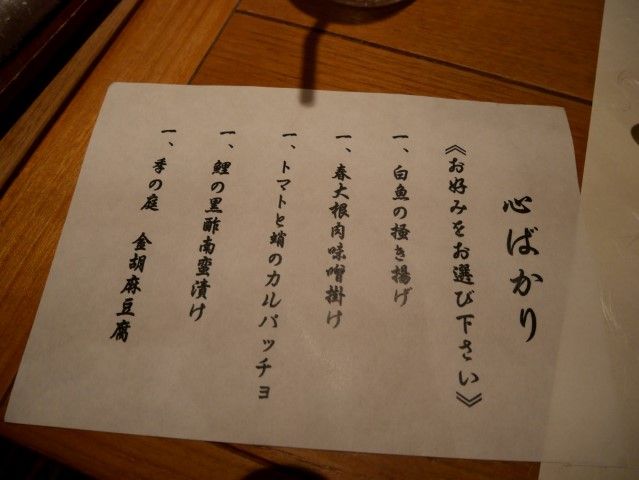 心ばかり
《お好みをお選び下さい》
一、白魚の掻き揚げ
一、春大根肉味噌掛け
一、トマトと蛸のカルパッチョ
一、鯉の黒酢南蛮漬け
一、季の庭　金胡麻豆腐